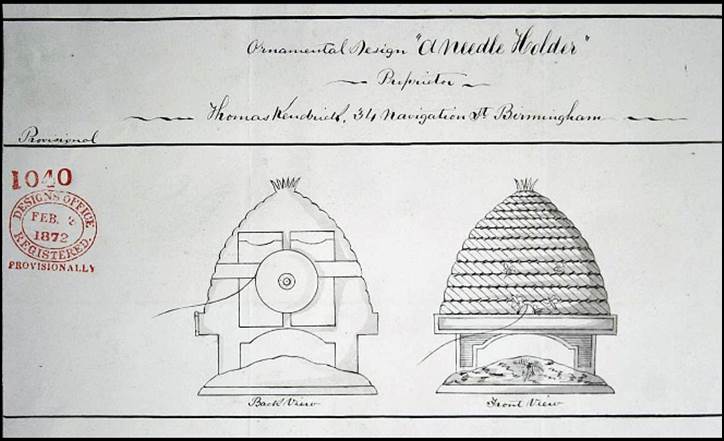 Ornamental Design "A Needle Holder"
Proprietor
Thomas Kendrick, 34 Navigation St Birmingham
Provisional
1040
DESIGNS OFFICE
FEB. 2
1872
REGISTERED.
PROVISIONALLY
Back View
Front View